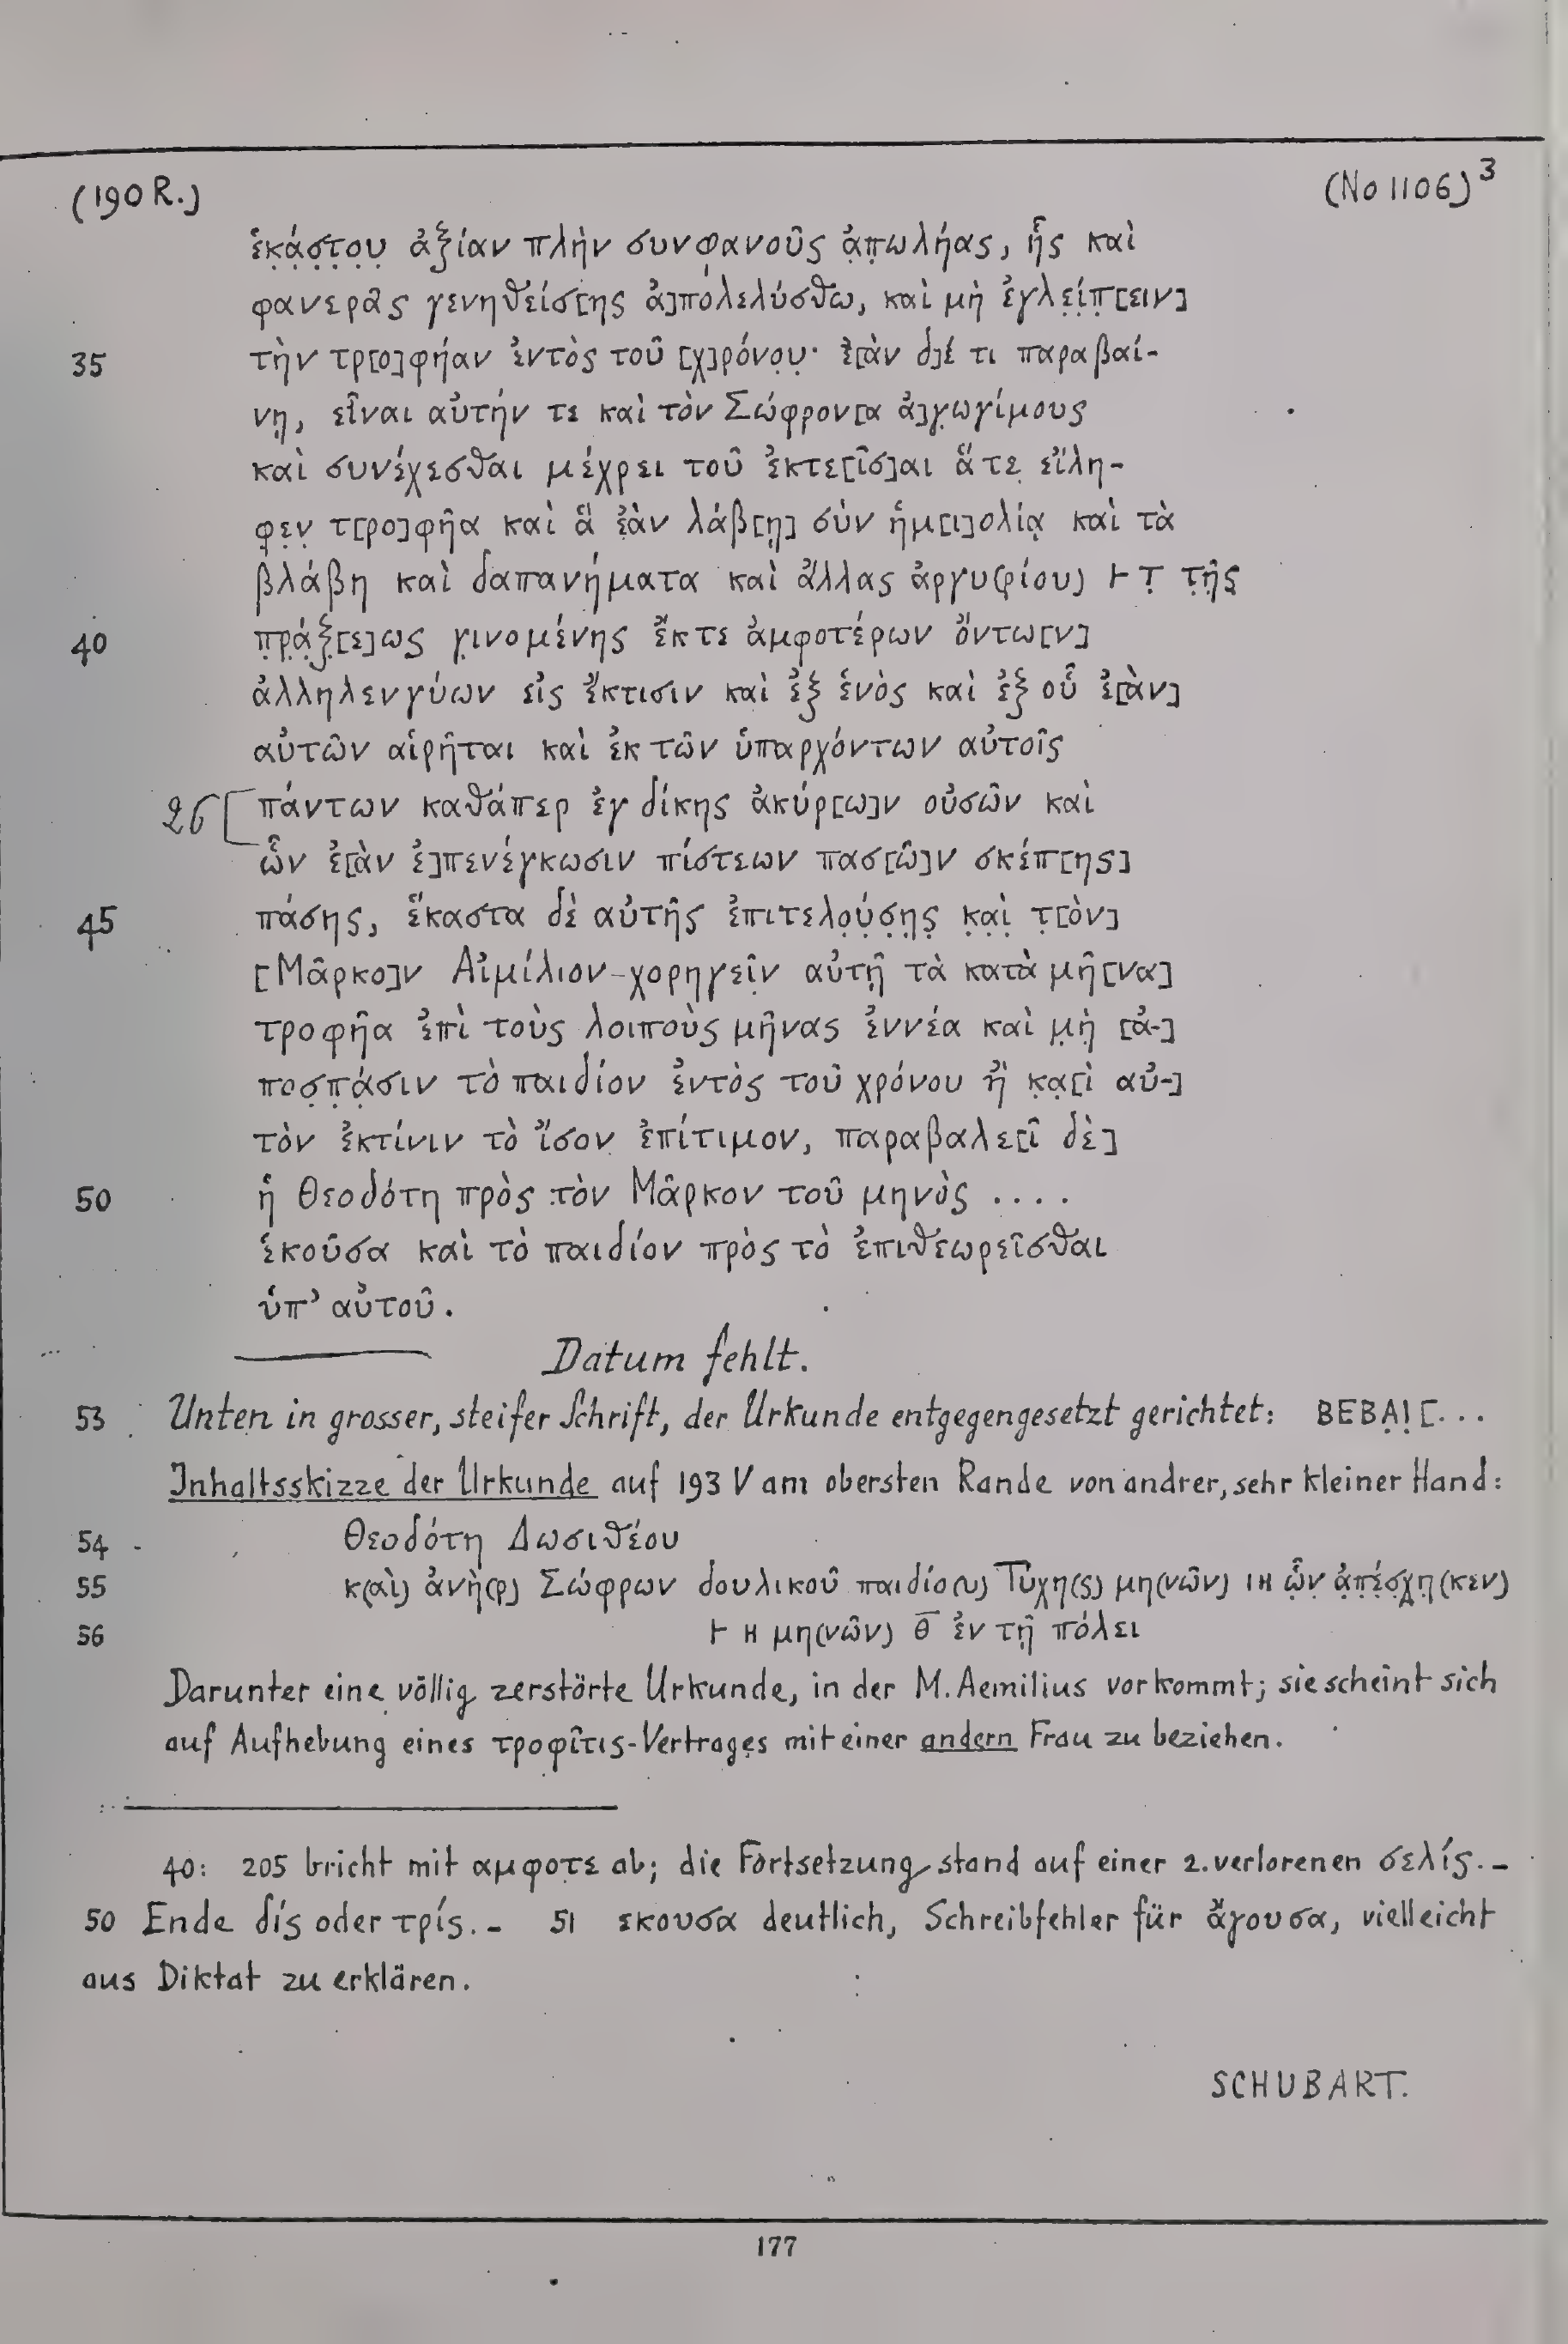 (190 R.)
(No 1106)³
ἑκ̣ά̣σ̣τ̣ο̣υ̣ ἀξίαν πλὴν συνφανοῦς ἀ̣π̣ωλήας, ἧς καὶ
φανερᾶς γενηθείσ[ης ἀ]πολελύσθω, καὶ μὴ ἐγλε̣ί̣π̣[ειν]
35 τὴν τρ[ο]φήαν ἐντὸς τοῦ [χ]ρόνο̣υ̣· ἐ[ὰν δ]έ τι παραβαί-
νῃ, εἶναι αὐτήν τε καὶ τὸν Σώφρον[α ἀ]γ̣ωγίμους
καὶ συνέχεσθαι μέχρει τοῦ ἐκτε[ῖσ]αι ἅ τε̣ εἴλη-
φ̣ε̣ν̣ τ[ρο]φῆα καὶ ἃ ἐὰν λάβ[ῃ] σὺν ἡμ[ι]ολίᾳ καὶ τὰ
βλάβη καὶ δαπανήματα καὶ ἄλλας ἀργυ(ρίου) 𐅂 Τ̣ τ̣ῆ̣ς̣
40 π̣ρ̣ά̣ξ̣[ε]ως γ̣ινομένης ἔκ τε ἀμφοτέρων ὄντω[ν]
ἀλληλενγύων εἰς ἔκτισιν καὶ ἐξ ἑνὸς καὶ ἐξ οὗ ἐ[ὰν]
αὐτῶν αἱρῆται καὶ ἐκ τῶν ὑπαρχόντων αὐτοῖς
26 [ πάντων καθάπερ ἐγ δίκης ἀκύρ[ω]ν οὐσῶν καὶ
ὧν ἐ[ὰν ἐ]πενέγκωσιν πίστεων πασ[ῶ]ν σκέπ[ης]
45 πάσης, ἕκαστα δὲ αὐτῆς ἐπιτελο̣ύ̣σ̣η̣ς̣ κ̣α̣ὶ̣ τ̣[ὸν]
[Μᾶρκο]ν Αἰμίλιον-χορηγεῖν αὐτῇ τὰ κατὰ μῆ[να]
τροφῆα ἐπὶ τοὺς λοιποὺς μῆνας ἐννέα καὶ μ̣ὴ̣ [ἀ-]
ποσ̣π̣ά̣σιν τὸ παιδίον ἐντὸς τοῦ χρόνου ἢ κ̣α̣[ὶ αὐ-]
τὸν ἐκτίνιν τὸ ἴσον ἐπίτιμον, παραβαλε[ῖ δὲ]
50 ἡ Θεοδότη πρὸς τὸν Μᾶρκον τοῦ μηνὸς ....
ἑκοῦσα καὶ τὸ παιδίον πρὸς τὸ ἐπιθεωρεῖσθαι
ὑπ’ αὐτοῦ.
Datum fehlt.
53 Unten in grosser, steifer Schrift, der Urkunde entgegengesetzt gerichtet: BEBẠỊ[...
Inhaltsskizze der Urkunde auf 193 V am obersten Rande von andrer, sehr kleiner Hand:
54 Θεοδότη Δωσιθέου
55 κ(αὶ) ἀνὴ(ρ) Σώφρων δουλικοῦ παιδίο(υ) Τύχη(ς) μη(νῶν) ιη ὧ̣ν̣ ἀ̣π̣έ̣σ̣χ̣η̣(κεν)
56 𐅂 η μη(νῶν) θ̅ ἐν τῇ πόλει
Darunter eine völlig zerstörte Urkunde, in der M. Aemilius vorkommt; sie scheint sich
auf Aufhebung eines τροφῖτις-Vertrages mit einer andern Frau zu beziehen.
40: 205 bricht mit αμφοτε ab; die Fortsetzung stand auf einer 2. verlorenen σελίς. –
50 Ende δίς oder τρίς. – 51 εκουσα deutlich, Schreibfehler für ἄγουσα, vielleicht
aus Diktat zu erklären.
SCHUBART.
177